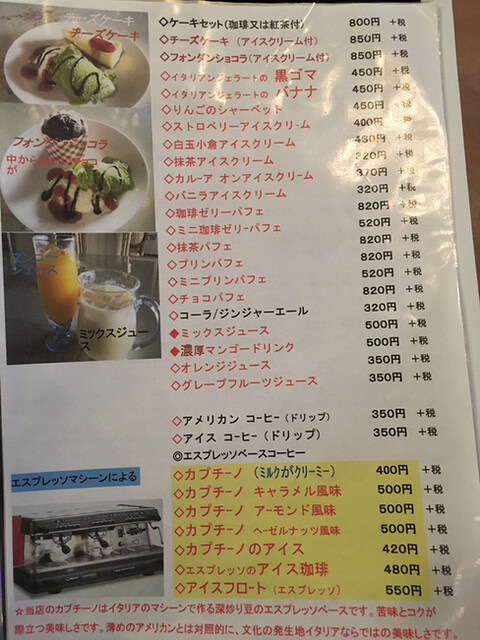 チーズケーキ
チーズケーキ
フォンダンショコラ
中から
が
ジュース
ミックスジュー
ス
◇ケーキセット(珈琲又は紅茶付) 800円 +税
◇チーズケーキ (アイスクリーム付) 850円 +税
◇フォンダンショコラ(アイスクリーム付) 850円 +税
◇イタリアンジェラートの 黒ゴマ 450円 +税
◇イタリアンジェラートの バナナ 450円 +税
◇りんごのシャーベット 450円 +税
◇ストロベリーアイスクリーム 400円 +税
◇白玉小倉アイスクリーム 430円 +税
◇抹茶アイスクリーム 320円 +税
◇カルーア オンアイスクリーム 370円 +税
◇バニラアイスクリーム 320円 +税
◇珈琲ゼリーパフェ 820円 +税
◇ミニ珈琲ゼリーパフェ 520円 +税
◇抹茶パフェ 820円 +税
◇プリンパフェ 820円 +税
◇ミニプリンパフェ 520円 +税
◇チョコパフェ 820円 +税
◇コーラ/ジンジャーエール 320円 +税
◆ミックスジュース 500円 +税
◆濃厚マンゴードリンク 500円 +税
◇オレンジジュース 350円 +税
◇グレープフルーツジュース 350円 +税
◇アメリカン コーヒー (ドリップ) 350円 +税
◇アイス コーヒー (ドリップ) 350円 +税
◎エスプレッソベースコーヒー
エスプレッソマシーンによる
◇カプチーノ (ミルクがクリーミー) 400円 +税
◇カプチーノ キャラメル風味 500円 +税
◇カプチーノ アーモンド風味 500円 +税
◇カプチーノ ヘーゼルナッツ風味 500円 +税
◇カプチーノのアイス 420円 +税
◇エスプレッソのアイス珈琲 480円 +税
◇アイスフロート (エスプレッソ) 550円 +税
☆当店のカプチーノはイタリアのマシーンで作る深炒り豆のエスプレッソベースです。苦味とコクが
際立つ美味しさです。薄めのアメリカンとは対照的に、文化の発生地イタリアならではの美味しさです。